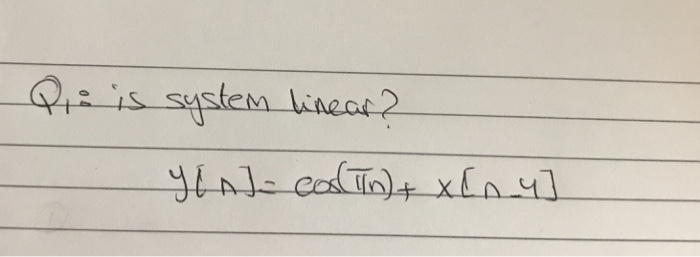 Q1: is system linear?
y[n]= cos(πn)+ x[n-4]